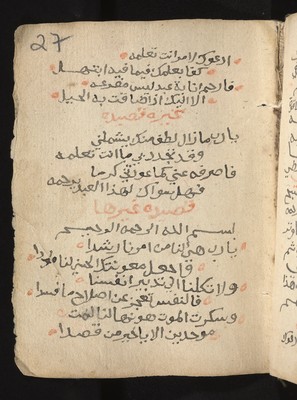 27
ادعوك لامر انت تعلمه
كفا بعلمك فيما فيه ابتهل
فارحم انابة عبد ليس مفزعه
الا اليك اذا ضاقت به الحيل
غيره قصيده
يارب مازال لطف منك يشملني
وقد تجدد بي ما انت تعلمه
فاصرفه عني كما عودتني كرما
فمن سواك لهذا العبد يرحمه
قصيده غيرها
بسم الله الرحمن الرحيم
يا رب هي لنا من امرنا رشدا
واجعل معونتك الحسنى لنا مددا
ولا تكلنا الى تدبير انفسنا
فالنفس تعجز عن اصلاح ما فسدا
وسكرت الموت هونها لنا
موحدين الاه خير من قصدا